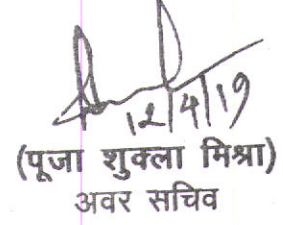 12/4/19
(पूजा शुक्ला मिश्रा)
अवर सचिव